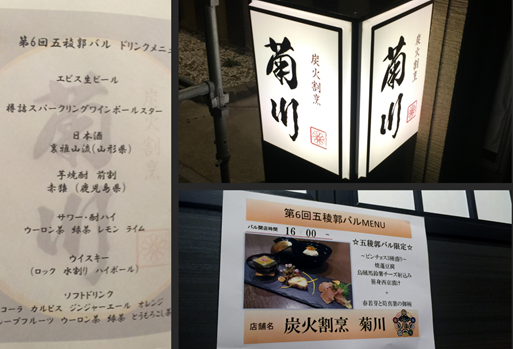 第6回五稜郭バル ドリンクメニュ
エビス生ビール
樽詰スパークリングワインポールスター
日本酒
裏祖山流(山形県)
芋焼酎 前割
赤猿 (鹿児島県)
サワー・酎ハイ
ウーロン茶 緑茶 レモン ライム
ウイスキー
(ロック 水割り ハイボール)
ソフトドリンク
コーラ カルピス ジンジャーエール オレンジ
ープフルーツ ウーロン茶 緑茶 とうもろこし茶
炭火割烹
菊川
炭火割烹
菊川
第6回五稜郭バルMENU
バル開店時間 16:00 ~
☆五稜郭バル限定☆
~ピンチョス3種盛り~
焼蓮豆腐
+
店舗名 炭火割烹 菊川